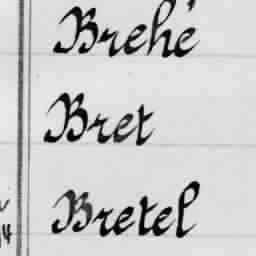 Brehé
Bret
Bretel